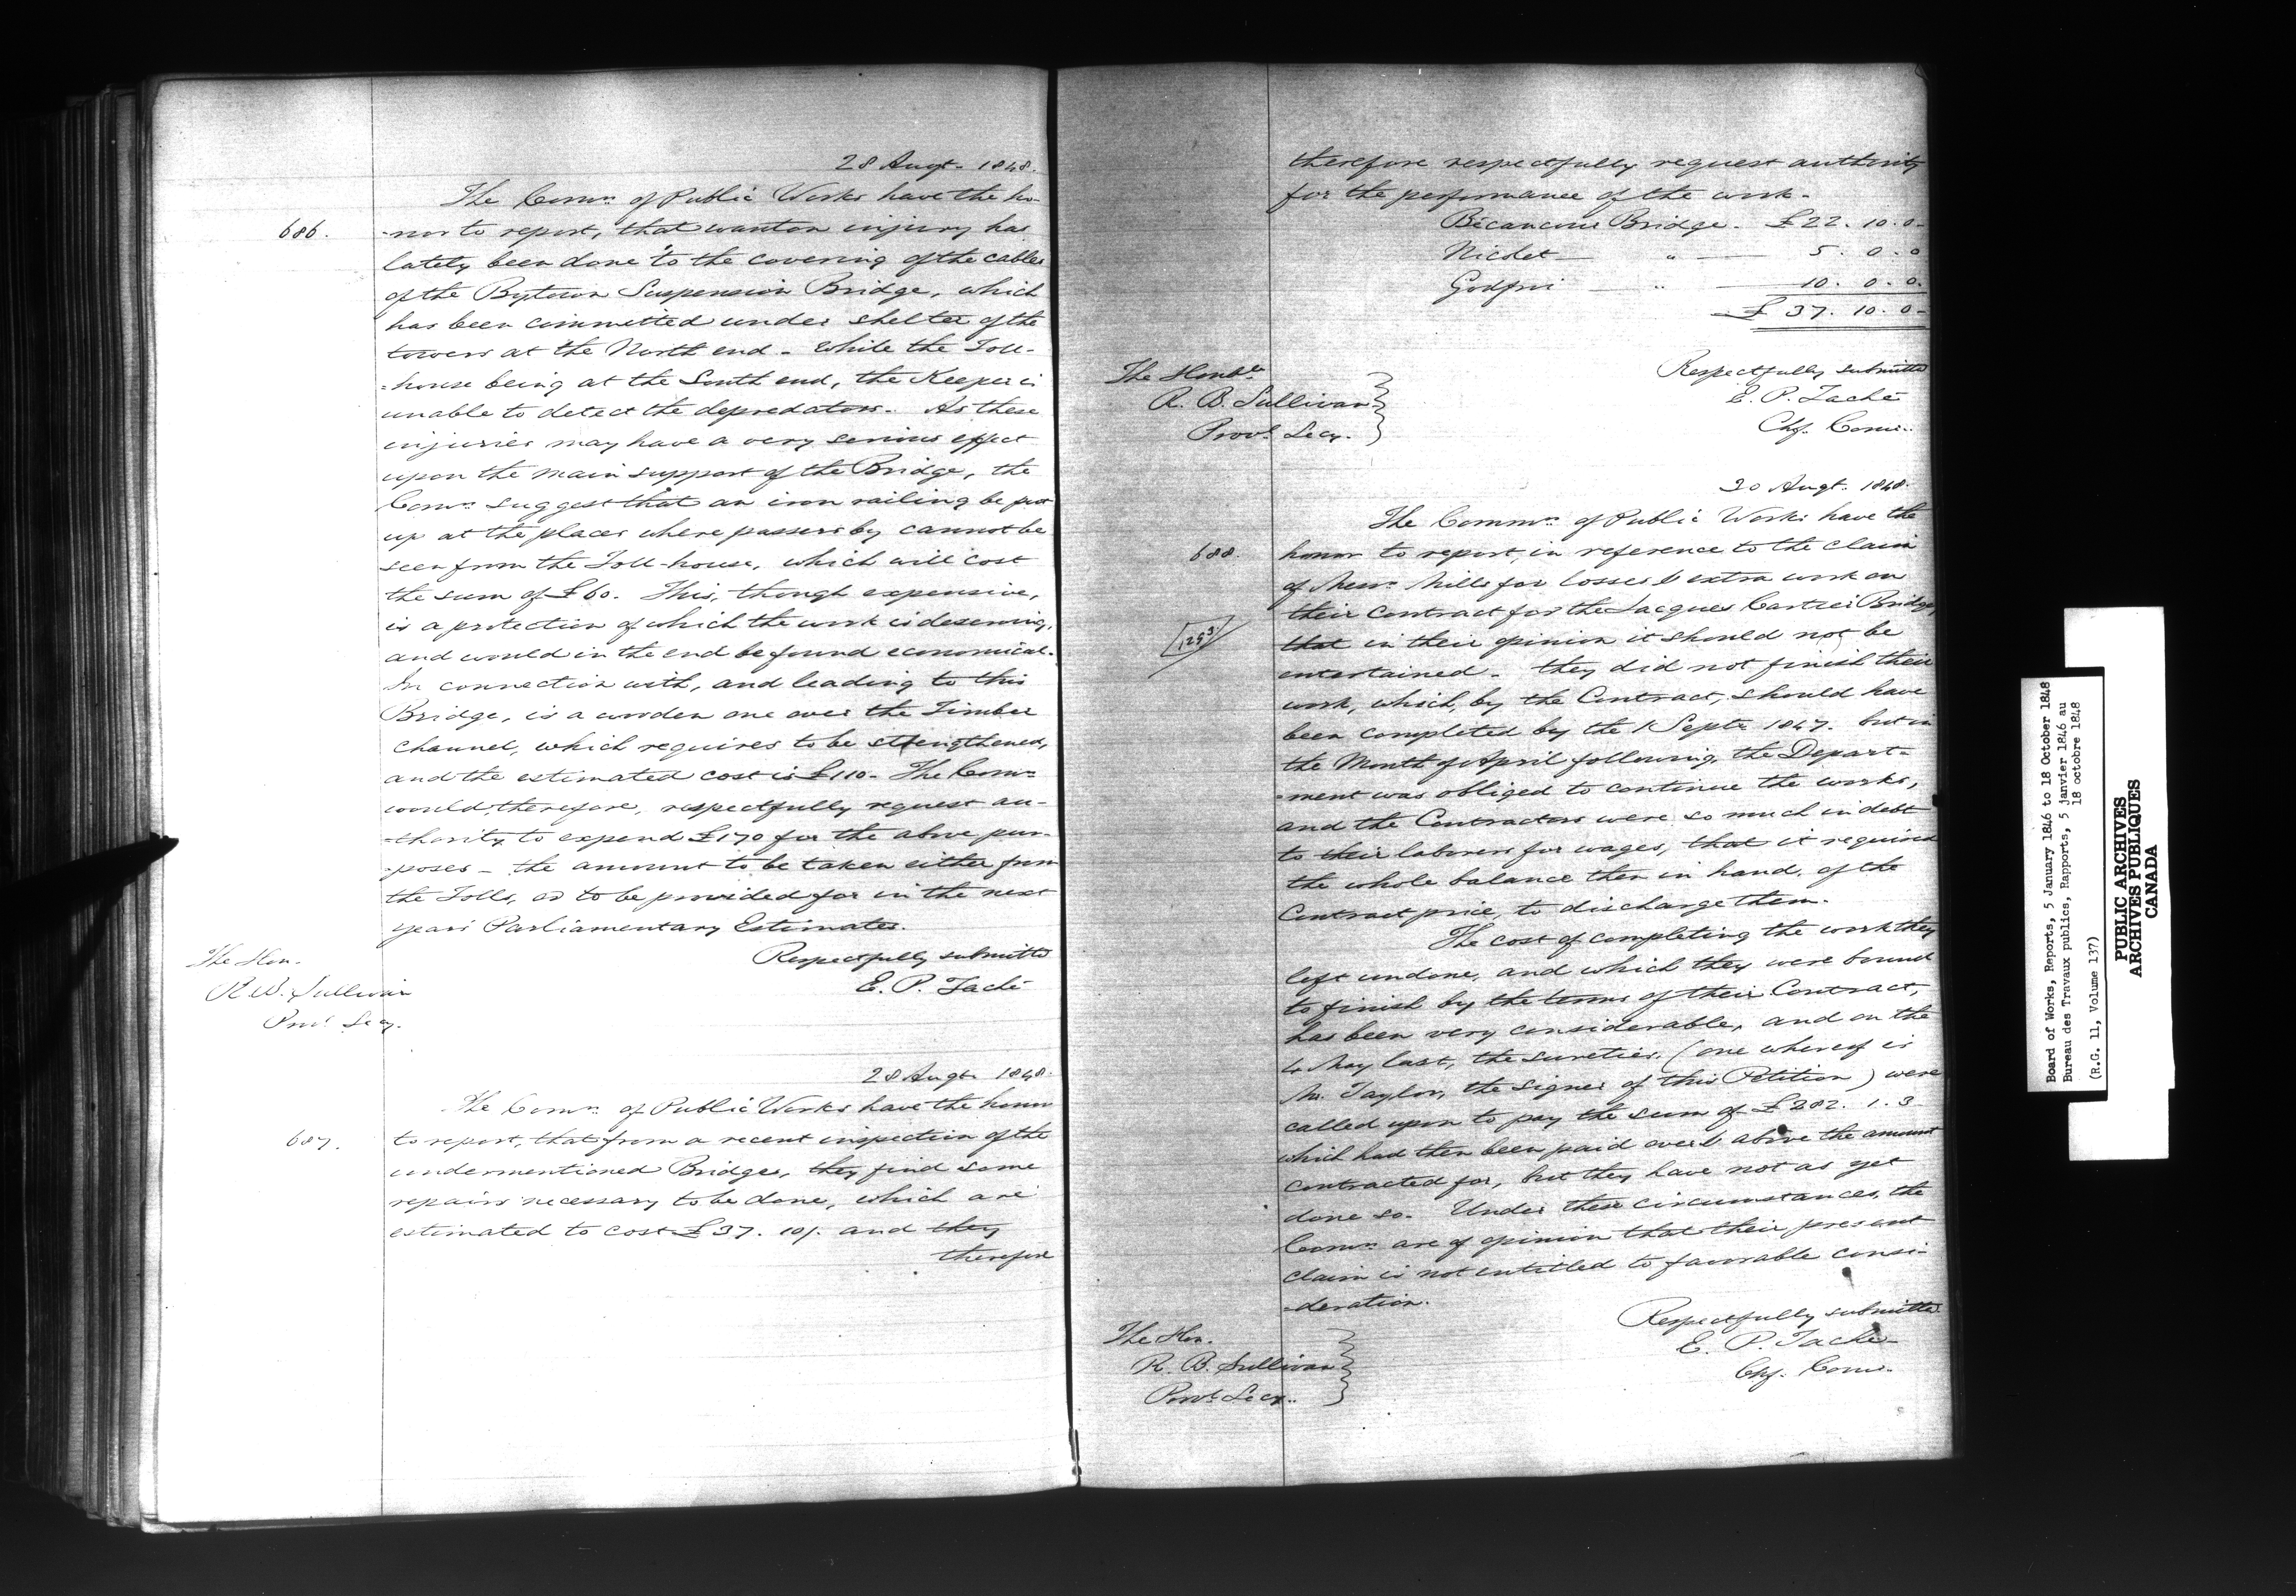 28 Augt. 1848.
The Comrs. of Public Works have the ho-
686.
-nor to report, that wanton injury has
lately been done to the covering of the cables
of the Bytown Suspension Bridge, which
has been committed under shelter of the
towers at the North end - while the Toll-
=house being at the South end, the Keeper is
unable to detect the depredators. As these
injuries may have a very serious effect
upon the main support of the Bridge, the
Comrs. suggest that an iron railing be put
up at the places where passers by cannot be
seen from the Toll-house, which will cost
the sum of £60. This, though expensive,
is a protection of which the work is deserving,
and would in the end be found economical.
In connection with, and leading to this
Bridge, is a wooden one over the Timber
Channel, which requires to be strengthened,
and the estimated cost is £110- The Comrs
would, therefore, respectfully request au-
-thority to expend £170 for the above pur-
-poses - the amount to be taken either from
the Tolls, or to be provided for in the next
years Parliamentary Estimates.
Respectfully submitted
E. P. Taché
The Hon.
R. B. Sullivan
Provl. Secy.
28 Augt. 1848.
The Comrs. of Public Works have the honor
687.
to report, that from a recent inspection of the
undermentioned Bridges, they find some
repairs necessary to be done, which are
estimated to cost £37. 10/. and they
therefore
therefore respectfully request authority
for the performance of the work.
Bécancour Bridge. £22. 10. 0-
Nicolet " 5. 0. 0
Godfroi " 10. 0. 0.
£ 37. 10. 0-
Respectfully submitted
E. P. Taché
Chf. Comr.
The Honble
R. B. Sullivan
Provl. Secy.
30 Augt. 1848.
The Commrs. of Public Works have the
688.
honor to report, in reference to the claim
of Messrs. Mills for losses & extra work on
their Contract for the Jacques Cartier Bridge,
1293
that in their opinion it should not be
entertained. they did not finish their
work, which, by the Contract, should have
been completed by the 1 Septr. 1847. but in
the Month of April following, the Depart=
=ment was obliged to continue the works,
and the Contractors were so much in debt
to their laborers for wages, that it required
the whole balance then in hand, of the
Contract price, to discharge them.
The cost of completing the work they
left undone, and which they were bound
to finish by the terms of their Contract,
has been very considerable, and on the
4 May last, the sureties, (one whereof is
Mr. Taylor, the signer of this Petition) were
called upon to pay the sum of £282. 1. 3
which had then been paid over & above the amount
contracted for, but they have not as yet
done so. Under these circumstances, the
Comrs. are of opinion that their present
claim is not entitled to favorable consi-
-deration.
Respectfully submitted
E. P. Taché
Chf. Comr.
The Hon.
R. B. Sullivan
Provl. Secy.
Board of Works, Reports, 5 January 1846 to 18 October 1848
Bureau des Travaux publics, Rapports, 5 janvier 1846 au
18 octobre 1848
(R.G. 11, Volume 137)
PUBLIC ARCHIVES
ARCHIVES PUBLIQUES
CANADA